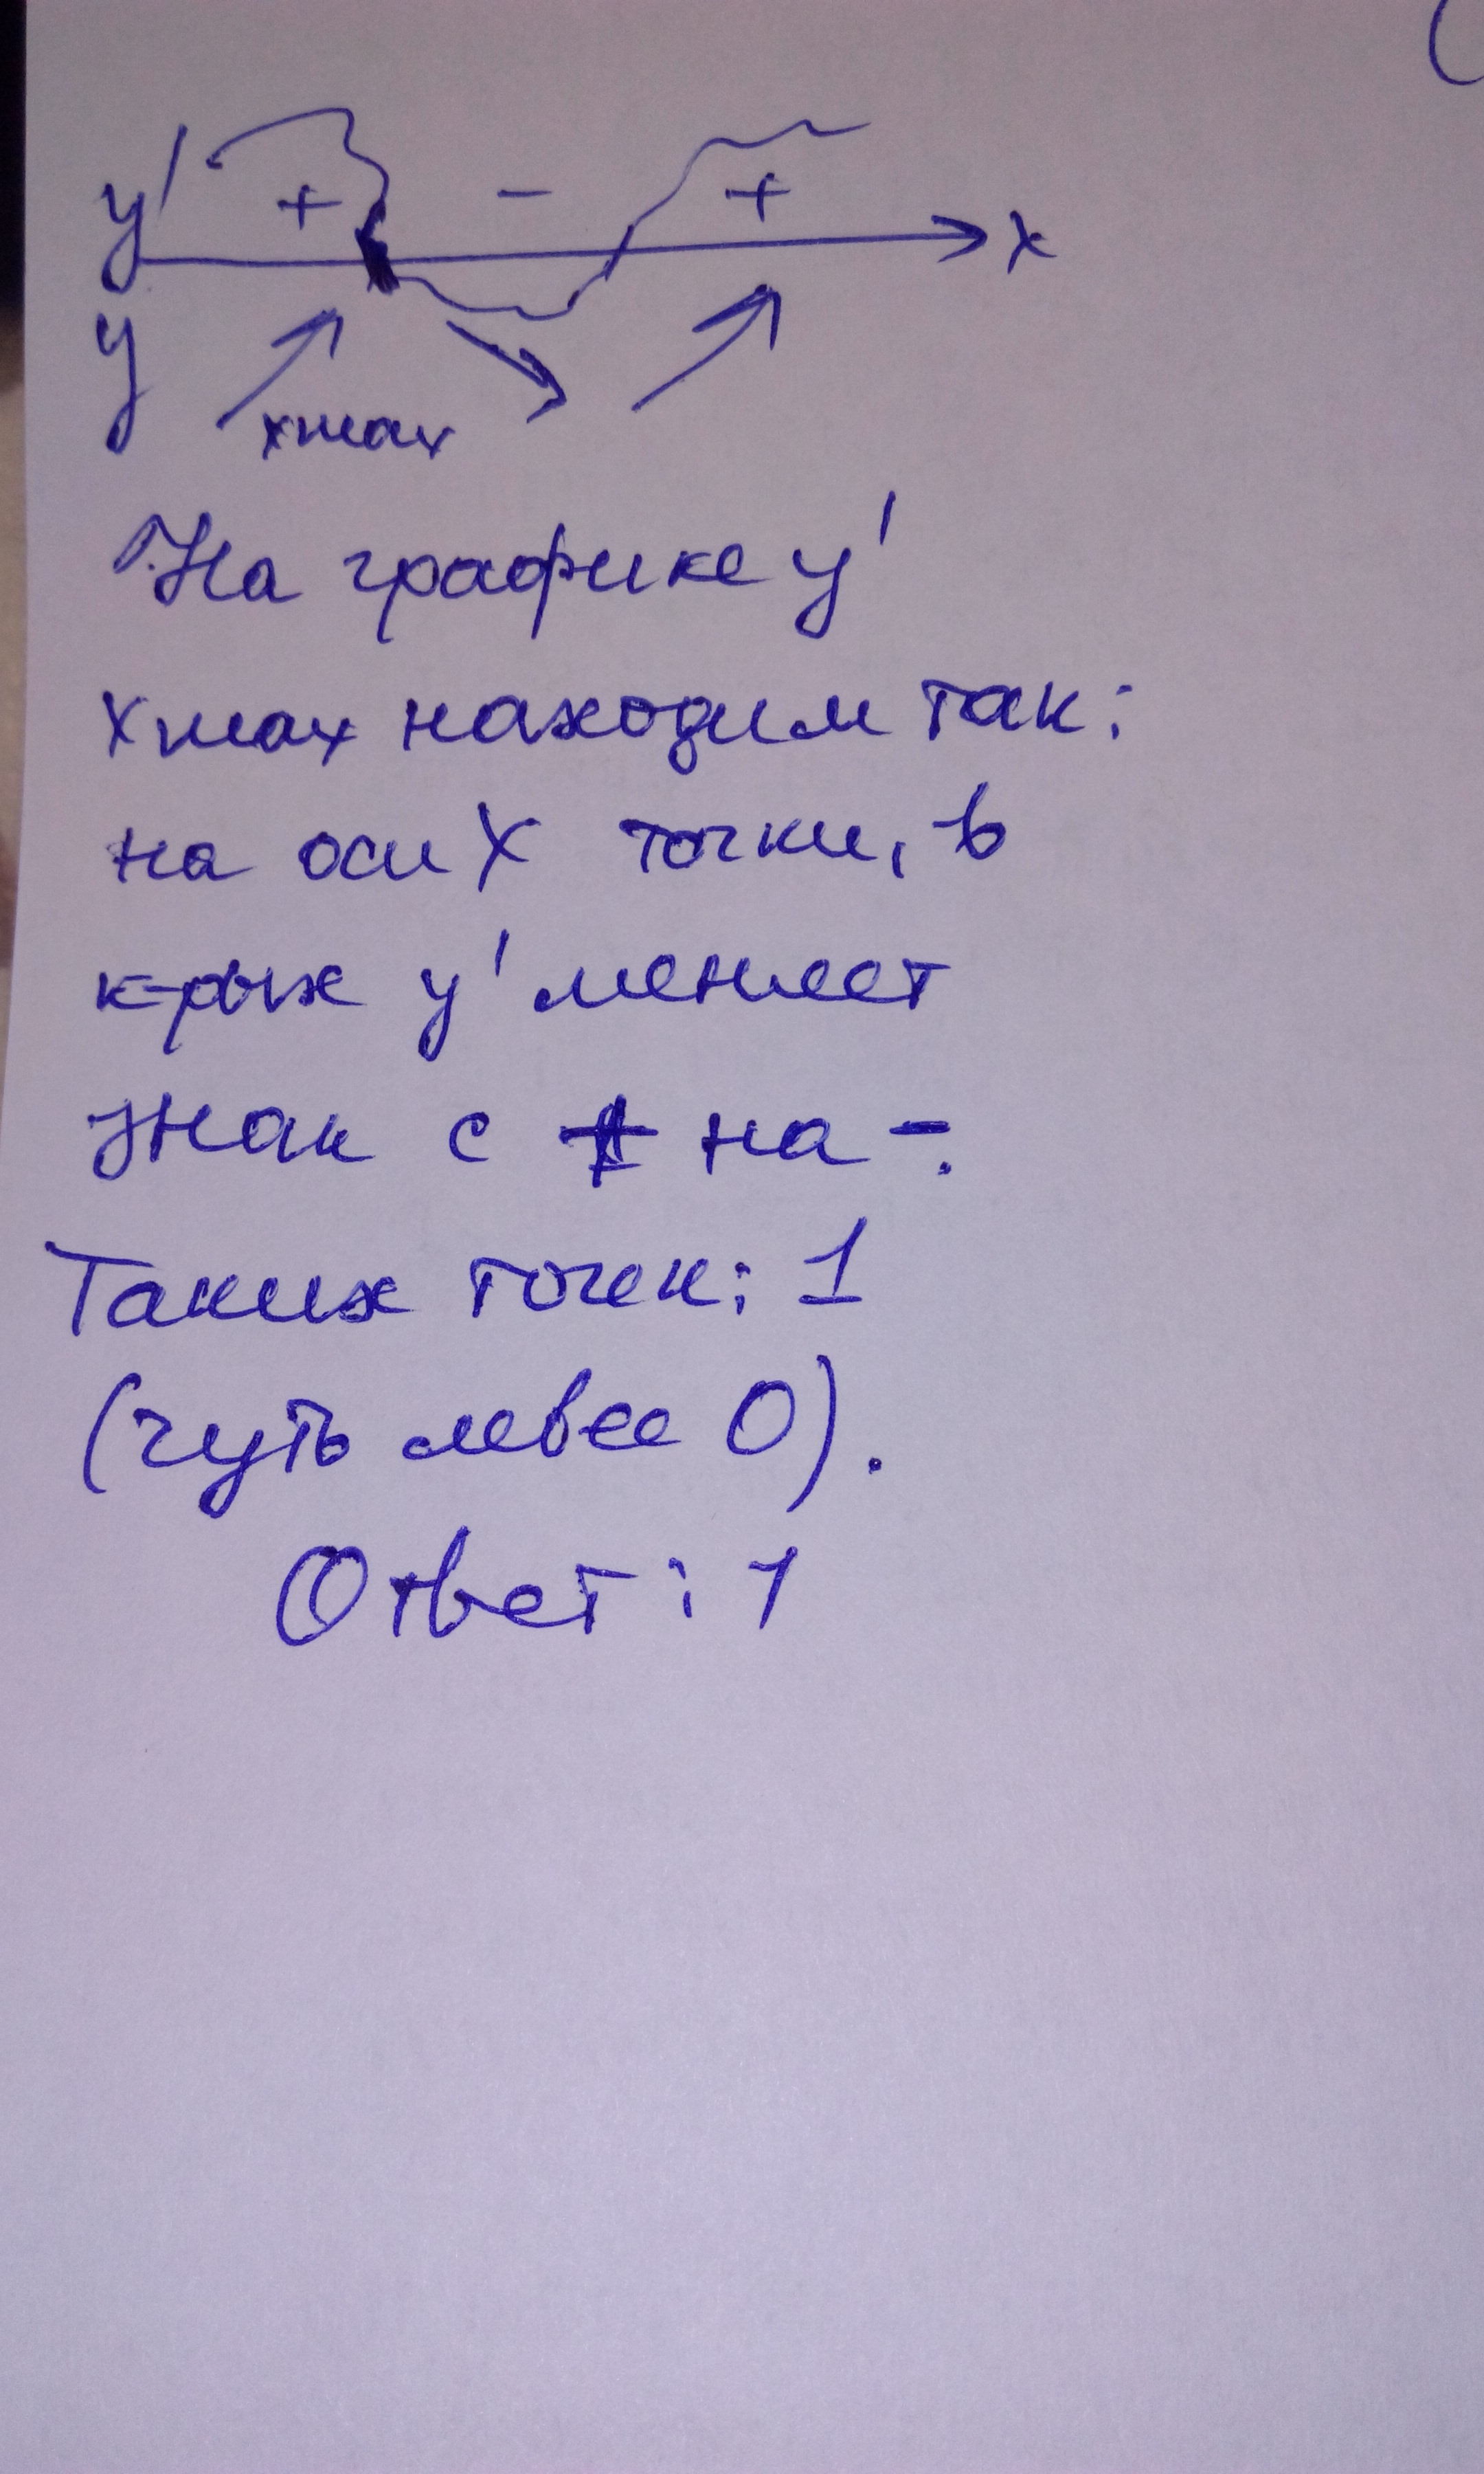 y'
+ - +
x
y
xmax
На графике y'
xmax находим так:
на оси X точки, в
к-рых y' меняет
знак с + на -.
Таких точек: 1
(чуть левее 0).
Ответ: 1